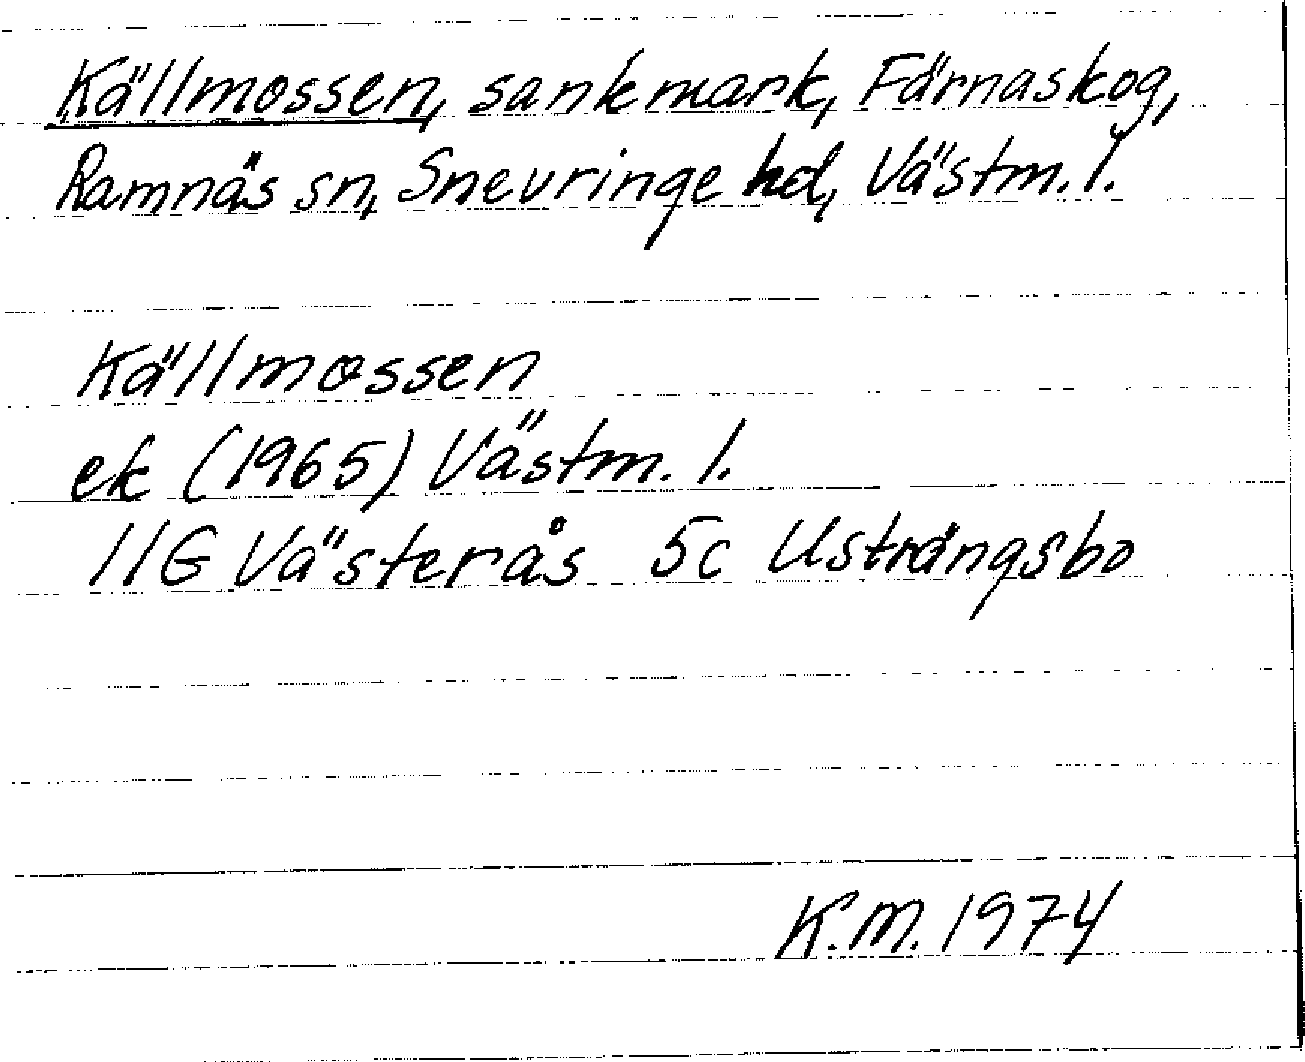 Källmossen, sankmark, Färnaskog,
Ramnäs sn, Snevringe hd, Västm. l.
Källmossen
ek (1965) Västm. l.
11G Västerås 5c Usträngsbo
K.M. 1974